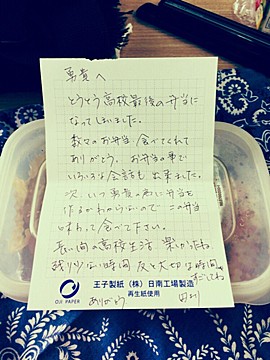 勇貴へ
とうとう高校最後の弁当に
なってしまいました。
数々のお弁当 食べてくれて
ありがとう。 お弁当の事で
いろいろな会話も出来ました。
次、いつ勇貴の為に弁当を
作るかわからないので この弁当
味わって食べて下さい。
長い間の高校生活 楽しかったね。
残り少ない時間 友と大切な時間。
すごしてね
ありがとう
OJI PAPER
王子製紙(株)日南工場製造
再生紙使用